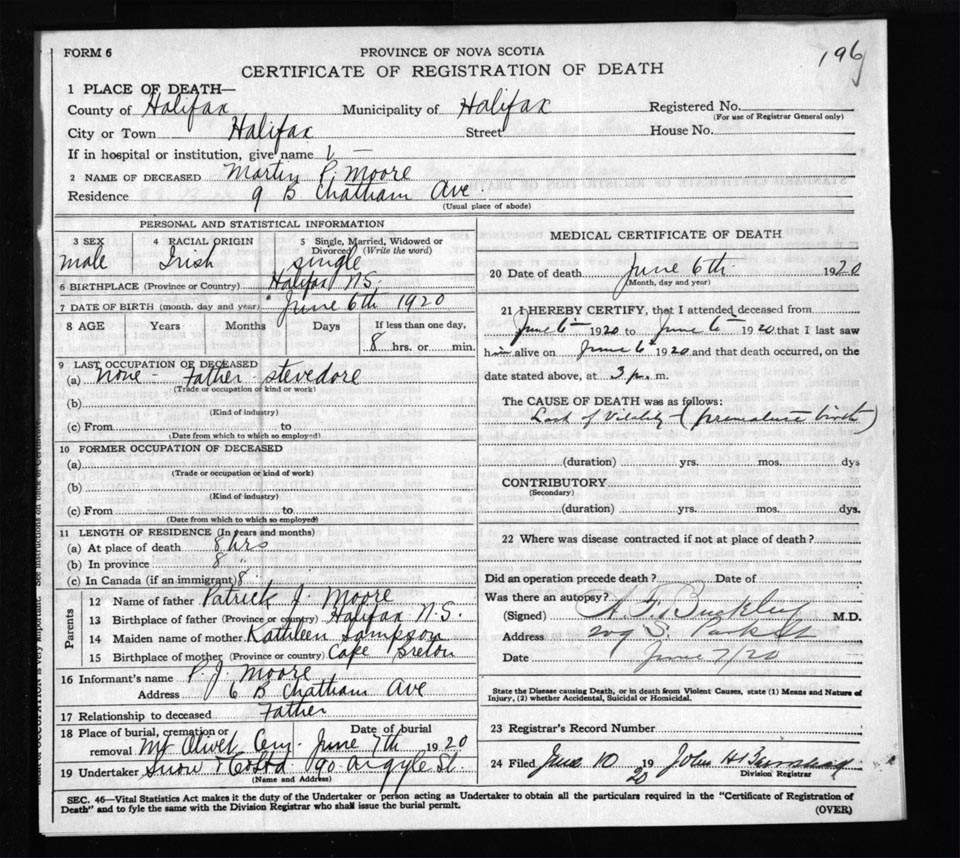 FORM 6
PROVINCE OF NOVA SCOTIA
196
CERTIFICATE OF REGISTRATION OF DEATH
1 PLACE OF DEATH—
County of Halifax Municipality of Halifax Registered No.
(For use of Registrar General only)
City or Town Halifax Street House No.
If in hospital or institution, give name
2 NAME OF DECEASED Martin P. Moore
Residence 9 B Chatham Ave.
(Usual place of abode)
PERSONAL AND STATISTICAL INFORMATION
3 SEX 4 RACIAL ORIGIN 5 Single, Married, Widowed or Divorced (Write the word)
male Irish single
6 BIRTHPLACE (Province or Country) Halifax N.S.
7 DATE OF BIRTH (month, day and year) June 6th 1920
8 AGE Years Months Days If less than one day,
8 hrs. or min.
9 LAST OCCUPATION OF DECEASED
(a) None - Father - stevedore
(Trade or occupation or kind or work)
(b)
(Kind of industry)
(c) From to
(Date from which to which so employed)
10 FORMER OCCUPATION OF DECEASED
(a)
(Trade or occupation or kind of work)
(b)
(Kind of industry)
(c) From to
(Date from which to which so employed)
11 LENGTH OF RESIDENCE (In years and months)
(a) At place of death 8 hrs
(b) In province 8 "
(c) In Canada (if an immigrant) 8 "
Parents
12 Name of father Patrick J. Moore
13 Birthplace of father (Province or country) Halifax N.S.
14 Maiden name of mother Kathleen Sampson
15 Birthplace of mother (Province or country) Cape Breton
16 Informant's name P. J. Moore
Address 6 B Chatham Ave
17 Relationship to deceased Father
18 Place of burial, cremation or removal Mt Olivet Cem. Date of burial June 7th 1920
19 Undertaker Snow & Co Ltd 90 Argyle St.
(Name and Address)
MEDICAL CERTIFICATE OF DEATH
20 Date of death June 6th 1920
(Month, day and year)
21 I HEREBY CERTIFY, that I attended deceased from
June 6th 1920 to June 6th 1920 that I last saw
him alive on June 6th 1920 and that death occurred, on the
date stated above, at 3 p. m.
The CAUSE OF DEATH was as follows:
Lack of Vitality (premature birth)
(duration) yrs. mos. dys
CONTRIBUTORY
(Secondary)
(duration) yrs. mos. dys.
22 Where was disease contracted if not at place of death?
Did an operation precede death? Date of
Was there an autopsy?
(Signed) A. G. Buckley M.D.
Address 209 S. Park St
Date June 7/20
State the Disease causing Death, or in death from Violent Causes, state (1) Means and Nature of
Injury, (2) whether Accidental, Suicidal or Homicidal.
23 Registrar's Record Number
24 Filed June 10 1920 John H
Division Registrar
SEC. 46—Vital Statistics Act makes it the duty of the Undertaker or person acting as Undertaker to obtain all the particulars required in the "Certificate of Registration of
Death" and to fyle the same with the Division Registrar who shall issue the burial permit.
(OVER)